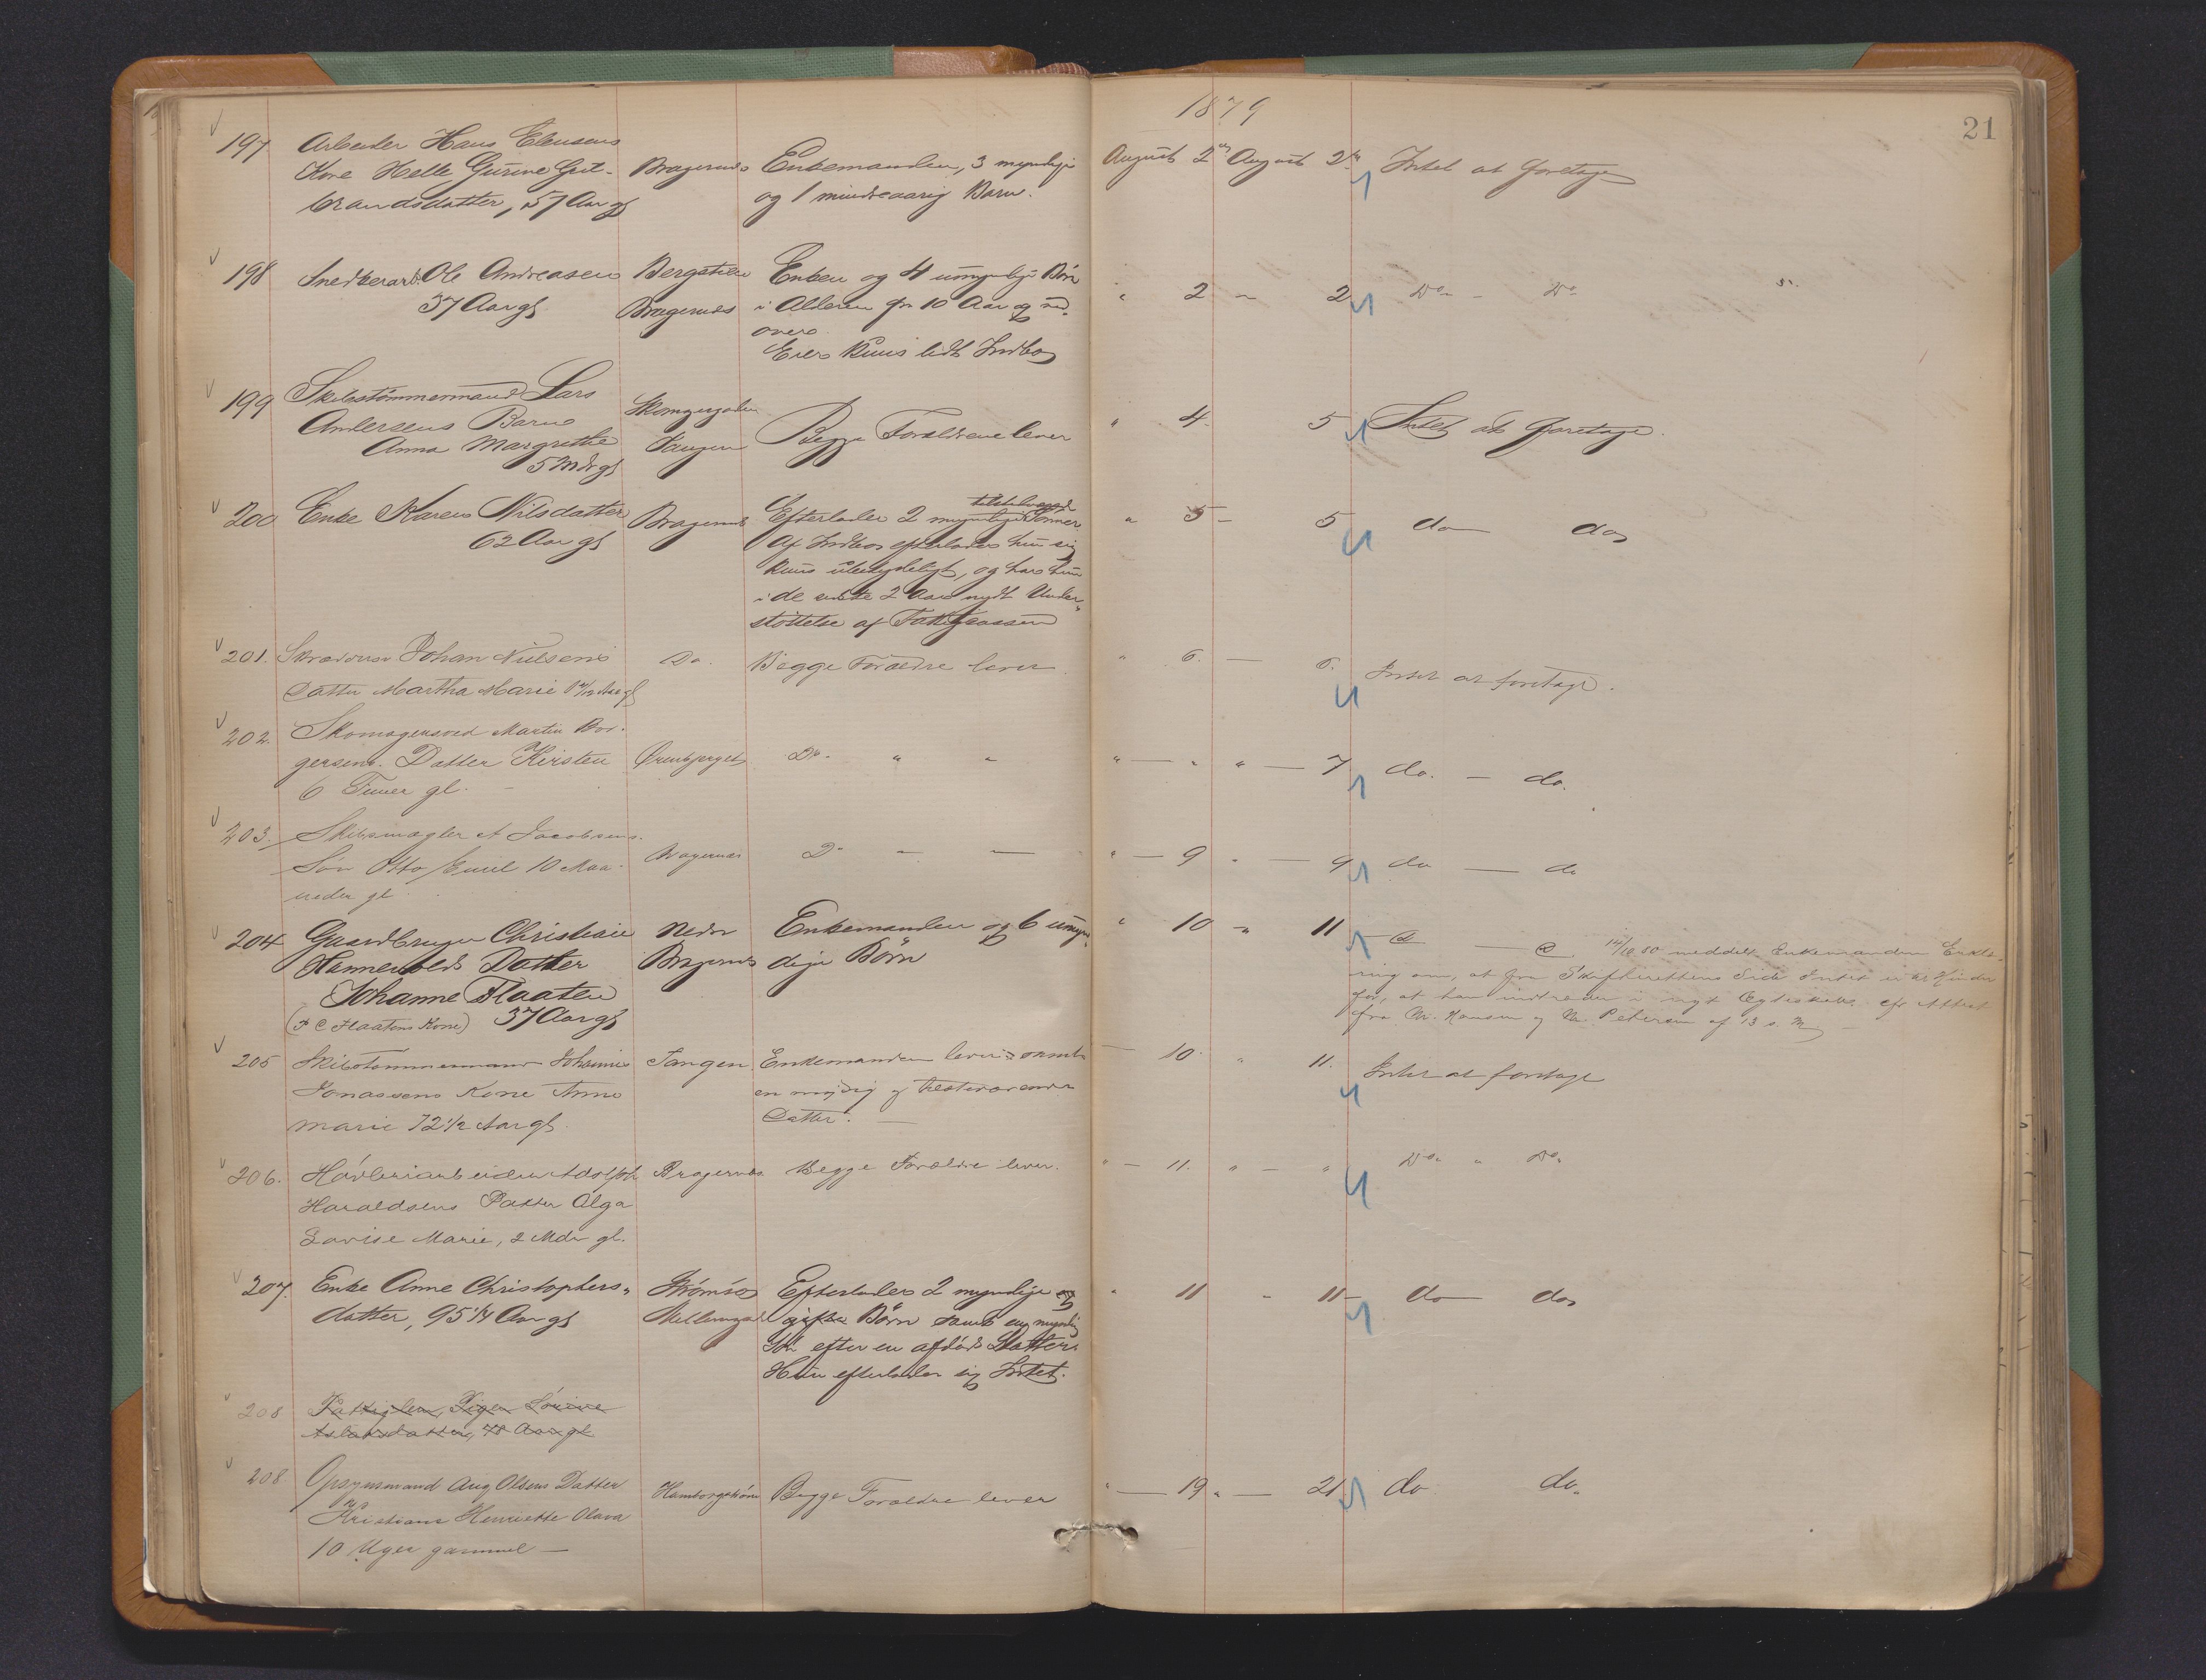 1879
21
197 Arbeider Hans Elensens
Kone Helle Gurine Gul-
brandsdatter, 57 Aar gl
Bragernæs
Enkemanden, 3 myndige
og 1 mindreaarig Barn.
August 2 August 2 Intet at foretage
198 Snedkerarb. Ole Andreasen
37 Aar gl.
Bragernæs
Enken og 4 umyndige Børn
i Alderen fra 10 Aar og ned-
over.
Eier kuns lidt Indbo
" 2 - 2 Do - Do
199 Skibstømmermand Lars
Andersens Barn
Anna Margrethe
5 Mdr gl
Tangen
Begge Forældrene lever
" 4 5 Intet at foretage.
200 Enke Karen Nilsdatter
62 Aar gl
Bragernæs
Efterlader 2 myndige Sønner
Af Indbo efterlader hun sig
kuns ubetydeligt, og har hun
i de sidste 2 Aar nydt Under-
støttelse af Fattigkassen
" 5 - 5 do do
201. Johan Nielsens
Datter Martha Marie
Do.
Begge Forældre lever.
" 6. — 6. Intet at foretage.
202. Skomagersvend Martin Bor-
gersens Datter Kirsten
6 Timer gl. -
Ørenbjerget
Do. " "
" — " " — 7 do. — do.
203. Skibsmægler A Jacobsens
Søn Otto Emil 10 Maa-
neder gl.
Bragernæs
Do — —
" — 9 " — 9 do — do
204 Gaardbruger Christian
Datter
Johanne Flaaten
(P C Flaatens Kone) 37 Aar gl
Nedre
Bragernæs
Enkemanden og 6 umyn-
dige Børn
" 10 " 11 — d — d. 14/10 80 meddelt Enkemanden Erklæ-
ring om, at fra Skifterettens Side Intet er til Hinder
for, at han indtræder i nyt Ægteskab, efter Attest
fra M. Hansen og N. Petersen af 13 s. M —
205 Skibstømmermand Johannes
Jonassens Kone Anne
Marie 72 1/2 Aar gl.
Tangen
Enkemanden lever samt
en myndig og tilstedeværende
Datter. —
— 10 " 11. Intet at foretage
206. Høvleriarbeider Adolph
Haraldsens Datter Olga
Lovise Marie, 2 Mdr gl.
Bragernæs
Begge Forældre lever.
" — 11. " — " Do " Do
207. Enke Anne Christophers-
datter, 95 1/4 Aar gl
Strømsø
Efterlader 2 myndige og
gifte Børn samt en myndig
efter en afdød Datter.
Hun efterlader sig Intet.
" 11 " 11 — do do
208 Fattiglem, Pigen
Aslaksdatter, 78 Aar gl
208 Opsynsmand Aug Olsens Datter
Kristiane Henriette Olava
10 Uger gammel —
Hamborgstrøm
Begge Forældre lever
" — 19 " — 21 do do.